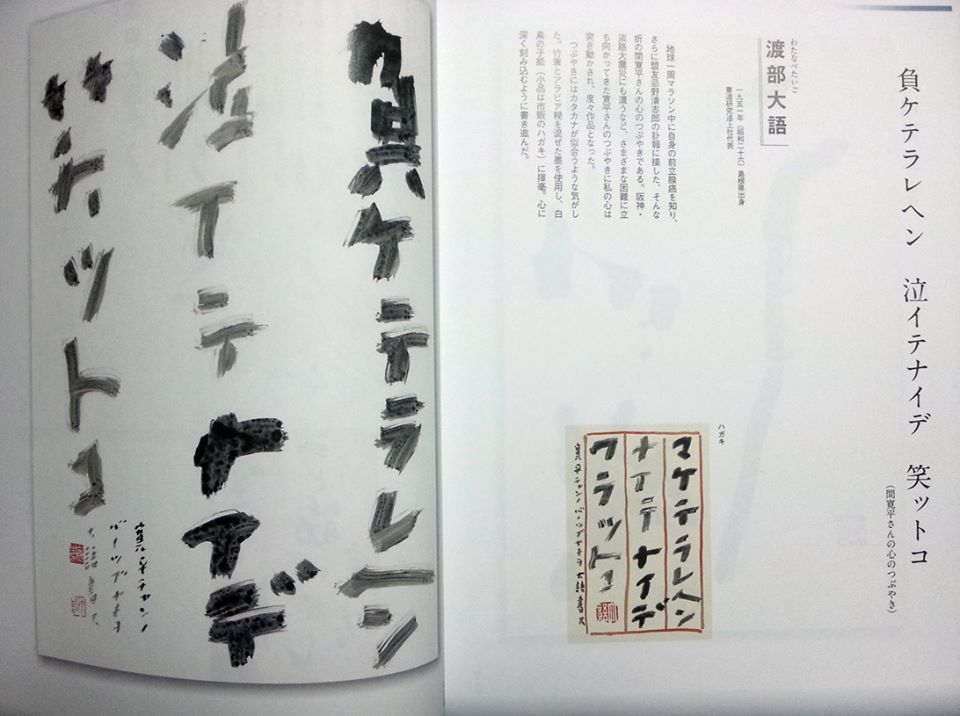 負ケテラレヘン　泣イテナイデ　笑ットコ
（間寛平さんの心のつぶやき）
わたなべたいご
渡部大語
一九五一年（昭和二十六）島根県出身
書道研究途上社代表
地球一周マラソン中に自身の前立腺癌を知り、
さらに盟友忌野清志郎の訃報に接した、そんな
折の間寛平さんの心のつぶやきである。阪神・
淡路大震災にも遭うなど、さまざまな困難に立
ち向かってきた寛平さんのつぶやきに私の心は
突き動かされ、度々作品となった。
つぶやきにはカタカナが似合うような気がし
た。竹筆とアラビア糊を混ぜた墨を使用し、白
鳥の子紙（小品は市販のハガキ）に揮毫。心に
深く刻み込むように書き進んだ。
ハガキ
マケテラレヘン
ナイテナイデ
ワラットコ
寛平チャンノ心ノツブヤキヲ 大語書ス
負ケテラレヘン
泣イテナイデ
笑ットコ
寛平チャンノ
心ノツブヤキヲ
大語書ス